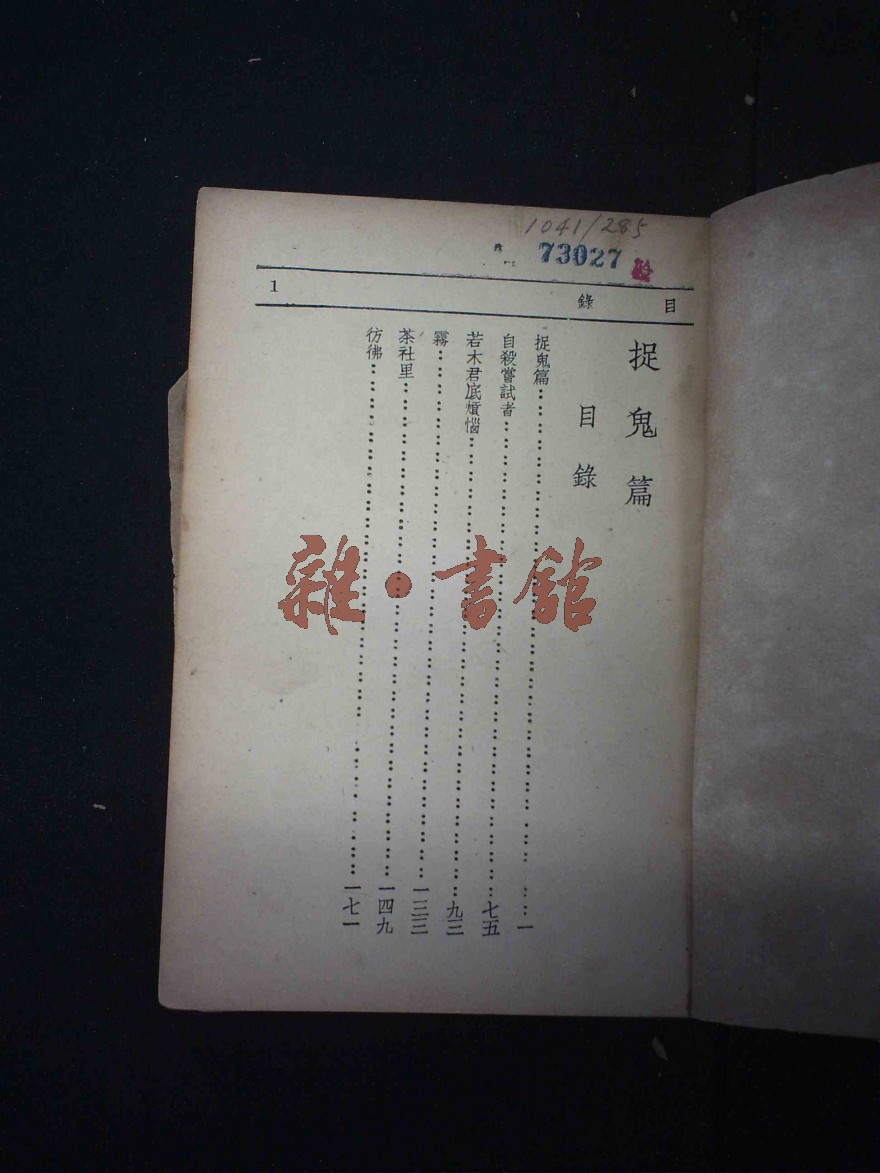 1041/285
73027
目 錄 1
捉鬼篇
目錄
捉鬼篇……一
自殺嘗試者……七五
若木君底煩惱……九三
霧……一三三
茶社里……一四九
彷彿……一七一
雜·書館